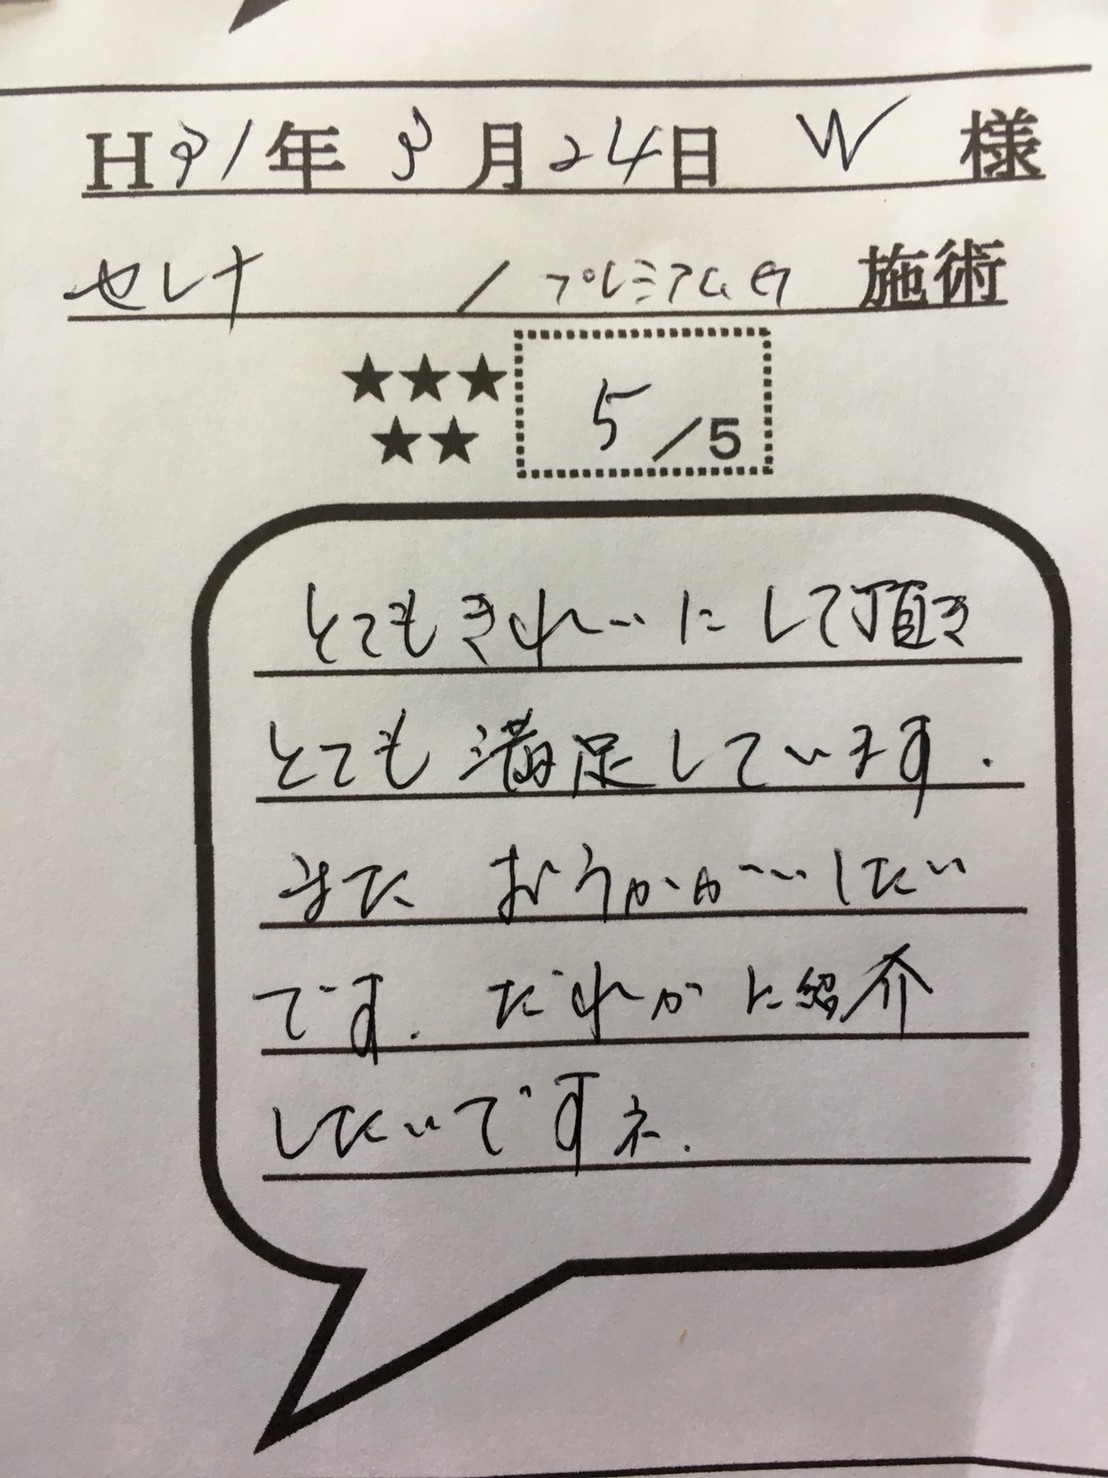 H31年 3月24日 W 様
セレナ / プレミアム 施術
★★★
★★
5/5
とてもきれいにして頂き
とても満足しています.
また おうかがいしたい
です. だれかに紹介
したいですネ.